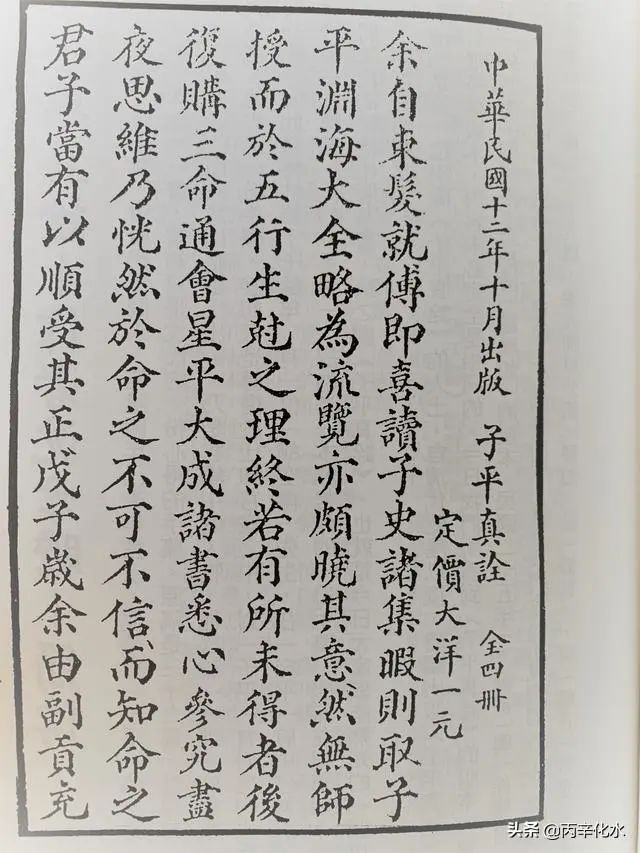 中華民國十二年十月出版 子平真詮 全四冊
定價大洋一元
余自束髮就傅即喜讀子史諸集暇則取子
平淵海大全略為流覽亦頗曉其意然無師
授而於五行生尅之理終若有所未得者後
復購三命通會星平大成諸書悉心參究晝
夜思維乃恍然於命之不可不信而知命之
君子當有以順受其正戊子歲余由副貢充
头条 @丙辛化水